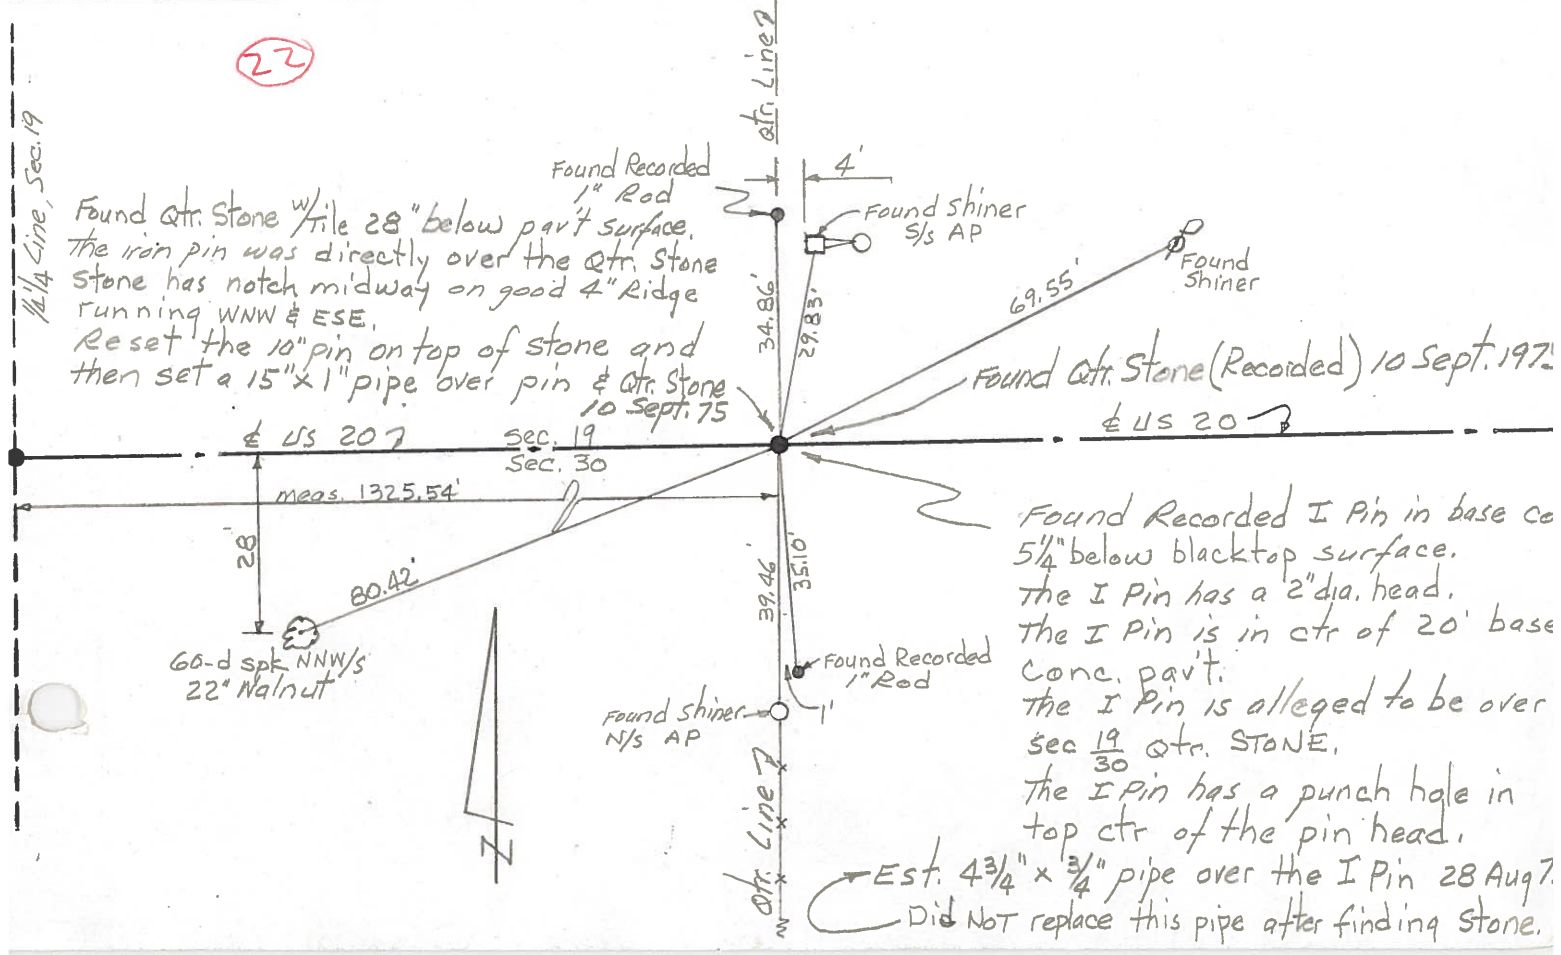 22
Qtr. Line
1/4 1/4 Line, Sec. 19
Found Recorded
1" Rod
4'
Found Shiner
S/s AP
Found
Shiner
Found Qtr. Stone w/Tile 28" below pav't surface.
The iron pin was directly over the Qtr. Stone
Stone has notch midway on good 4" Ridge
running WNW & ESE.
Reset the 10" pin on top of stone and
then set a 15" x 1" pipe over pin & Qtr. Stone
10 Sept. 75
34.86'
29.83'
69.55'
Found Qtr. Stone (Recorded) 10 Sept. 197
℄ US 20
Sec. 19
Sec. 30
℄ US 20
meas. 1325.54'
28'
80.42'
39.46'
35.10'
60-d spk NNW/s
22" Walnut
Found Recorded
1" Rod
1'
Found Shiner
N/s AP
N
Qtr. Line
Found Recorded I Pin in base co
5 1/4" below blacktop surface.
The I Pin has a 2" dia. head.
The I Pin is in ctr of 20' base
conc. pav't.
The I Pin is alleged to be over
Sec 19/30 Qtr. STONE.
The I Pin has a punch hole in
top ctr of the pin head.
Est. 4 3/4" x 3/4" pipe over the I Pin 28 Aug 7
Did NOT replace this pipe after finding Stone.